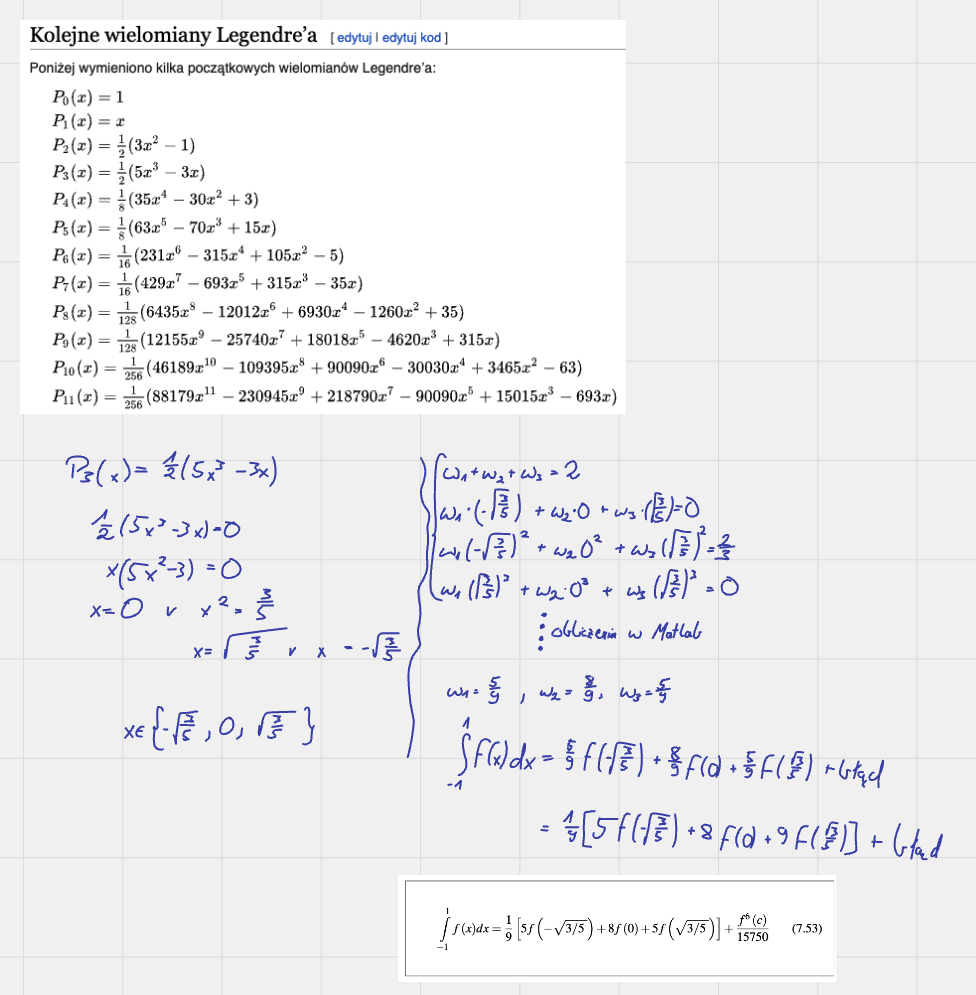 Kolejne wielomiany Legendre'a [ edytuj | edytuj kod ]
Poniżej wymieniono kilka początkowych wielomianów Legendre'a:
P₀(x) = 1
P₁(x) = x
P₂(x) = 1/2(3x² − 1)
P₃(x) = 1/2(5x³ − 3x)
P₄(x) = 1/8(35x⁴ − 30x² + 3)
P₅(x) = 1/8(63x⁵ − 70x³ + 15x)
P₆(x) = 1/16(231x⁶ − 315x⁴ + 105x² − 5)
P₇(x) = 1/16(429x⁷ − 693x⁵ + 315x³ − 35x)
P₈(x) = 1/128(6435x⁸ − 12012x⁶ + 6930x⁴ − 1260x² + 35)
P₉(x) = 1/128(12155x⁹ − 25740x⁷ + 18018x⁵ − 4620x³ + 315x)
P₁₀(x) = 1/256(46189x¹⁰ − 109395x⁸ + 90090x⁶ − 30030x⁴ + 3465x² − 63)
P₁₁(x) = 1/256(88179x¹¹ − 230945x⁹ + 218790x⁷ − 90090x⁵ + 15015x³ − 693x)
P₃(x) = 1/2(5x³ − 3x)
1/2(5x³ − 3x) = 0
x(5x² − 3) = 0
x = 0 v x² = 3/5
x = √(3/5) v x = −√(3/5)
x ∈ {−√(3/5), 0, √(3/5)}
ω₁ + ω₂ + ω₃ = 2
ω₁·(−√(3/5)) + ω₂·0 + ω₃·(√(3/5)) = 0
ω₁(−√(3/5))² + ω₂0² + ω₃(√(3/5))² = 2/3
ω₁(√(3/5))³ + ω₂·0³ + ω₃(√(3/5))³ = 0
⋮ obliczenia w Matlab
ω₁ = 5/9, ω₂ = 8/9, ω₃ = 5/9
∫₋₁¹ f(x)dx = 5/9 f(−√(3/5)) + 8/9 f(0) + 5/9 f(√3/5) + błąd
= 1/9[5f(−√(3/5)) + 8f(0) + 9f(√3/5)] + błąd
∫₋₁¹ f(x)dx = 1/9 [5f(−√3/5) + 8f(0) + 5f(√3/5)] + f⁶(c)/15750 (7.53)